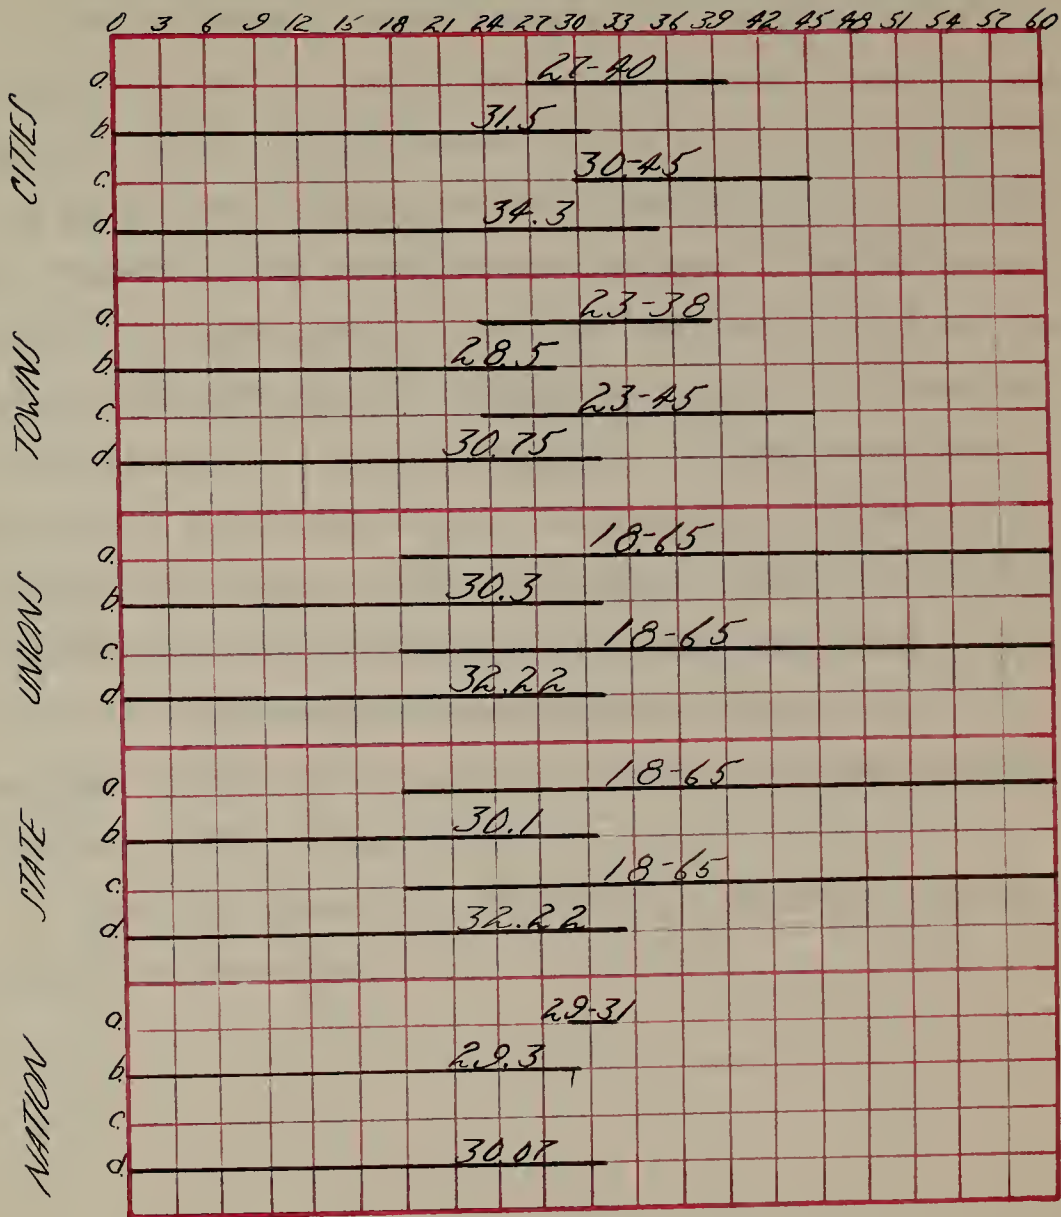 0 3 6 9 12 15 18 21 24 27 30 33 36 39 42 45 48 51 54 57 60
CITIES
a. 27-40
b. 31.5
c. 30-45
d. 34.3
TOWNS
a. 23-38
b. 28.5
c. 23-45
d. 30.75
UNIONS
a. 18-65
b. 30.3
c. 18-65
d. 32.22
STATE
a. 18-65
b. 30.1
c. 18-65
d. 32.22
NATION
a. 29-31
b. 29.3
c.
d. 30.07